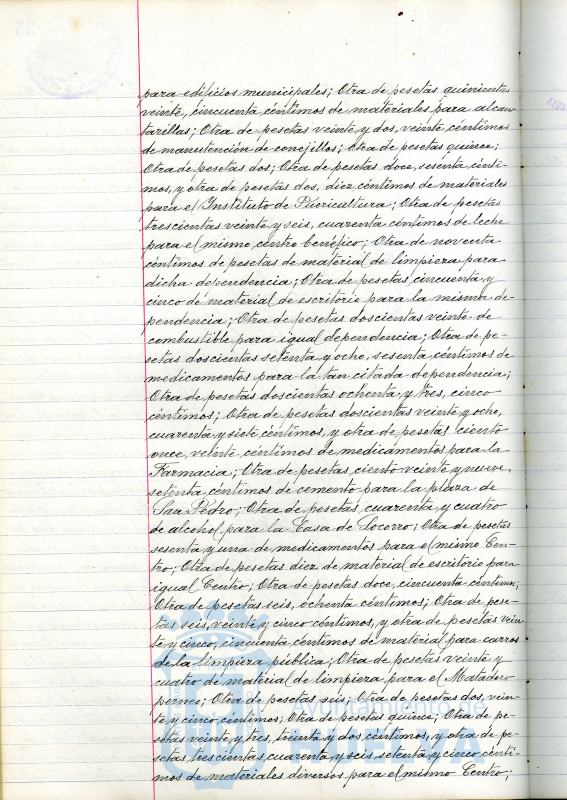 para edificios municipales; Otra de pesetas quinientas
veinte, cincuenta céntimos de materiales para alcan-
tarillas; Otra de pesetas veinte y dos, veinte céntimos
de manutención de conejillos; Otra de pesetas quince;
Otra de pesetas dos; Otra de pesetas doce, sesenta cénti-
mos, y otra de pesetas dos, diez céntimos de materiales
para el Instituto de Puericultura; Otra de pesetas
trescientas veinte y seis, cuarenta céntimos de leche
para el mismo centro benéfico; Otra de noventa
céntimos de pesetas de material de limpiera para
dicha dependencia; Otra de pesetas cincuenta y
cinco de material de escritorio para la misma de-
pendencia; Otra de pesetas doscientas veinte de
combustible para igual dependencia; Otra de pe-
setas doscientas setenta y ocho, sesenta céntimos de
medicamentos para la tan citada dependencia;
Otra de pesetas doscientas ochenta y tres, cinco
céntimos; Otra de pesetas doscientas veinte y ocho,
cuarenta y siete céntimos, y otra de pesetas ciento
once, veinte céntimos de medicamentos para la
Farmacia; Otra de pesetas ciento veinte y nueve,
setenta céntimos de cemento para la plaza de
San Pedro; Otra de pesetas cuarenta y cuatro
de alcohol para la Casa de Socorro; Otra de pesetas
sesenta y una de medicamentos para el mismo Cen-
tro; Otra de pesetas diez de material de escritorio para
igual Centro; Otra de pesetas doce, cincuenta céntimos;
Otra de pesetas seis, ochenta céntimos; Otra de pese-
tas seis, veinte y cinco céntimos, y otra de pesetas vein-
te y cinco, cincuenta céntimos de material para carros
de la limpiera pública; Otra de pesetas veinte y
cuatro de material de limpiera para el Matadero
Otra de pesetas seis; Otra de pesetas dos, vein-
te y cinco céntimos; Otra de pesetas quince; Otra de pe-
setas veinte y tres, treinta y dos céntimos, y otra de pe-
setas trescientas cuarenta y seis, setenta y cinco cénti-
mos de materiales diversos para el mismo Centro;
Ayuntamiento de